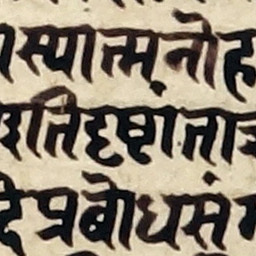 स्यात्मनो ह
ति दृष्टांता
प्रबोधसं